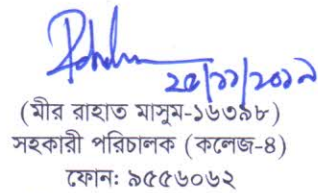 ২৫/১১/২০১৯
(মীর রাহাত মাসুম-১৬৩৯৮)
সহকারী পরিচালক (কলেজ-৪)
ফোন: ৯৫৫৬০৬২